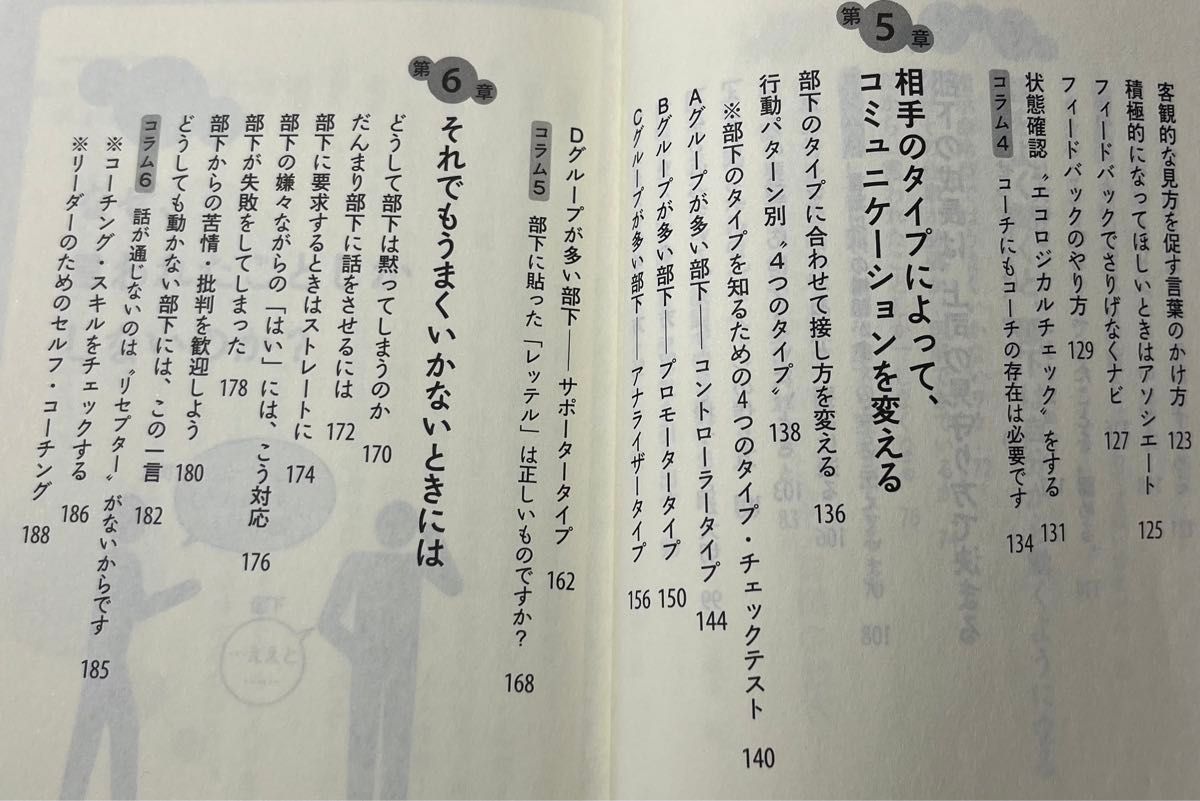 客観的な見方を促す言葉のかけ方 123
積極的になってほしいときはアソシエート 125
フィードバックでさりげなくナビ 127
フィードバックのやり方 129
状態確認〝エコロジカルチェック〟をする 131
コラム4 コーチにもコーチの存在は必要です 134
第5章
相手のタイプによって、
コミュニケーションを変える
部下のタイプに合わせて接し方を変える 136
行動パターン別〝4つのタイプ〟 138
※部下のタイプを知るための4つのタイプ・チェックテスト 140
Aグループが多い部下――コントローラータイプ 144
Bグループが多い部下――プロモータータイプ 150
Cグループが多い部下――アナライザータイプ 156
Dグループが多い部下――サポータータイプ 162
コラム5 部下に貼った「レッテル」は正しいものですか? 168
第6章
それでもうまくいかないときには
どうして部下は黙ってしまうのか 170
だんまり部下に話をさせるには 172
部下に要求するときはストレートに 174
部下の嫌々ながらの「はい」には、こう対応 176
部下が失敗をしてしまった 178
部下からの苦情・批判を歓迎しよう 180
どうしても動かない部下には、この一言 182
コラム6 話が通じないのは〝リセプター〟がないからです 185
※コーチング・スキルをチェックする 186
※リーダーのためのセルフ・コーチング 188